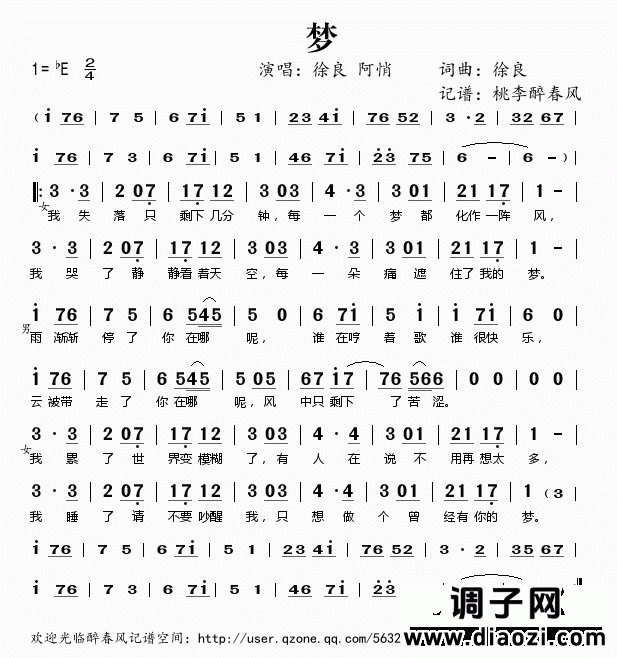 梦
1= ♭E 2/4 演唱：徐良 阿悄 词曲：徐良
记谱：桃李醉春风
（i 76 | 7 5 | 6 7i | 5 1 | 23 4i | 76 52 | 3 · 2 | 32 67 |
i 76 | 7 3 | 6 7i | 5 1 | 23 46 | 7i | 23 75 | 6 - | 6 - ）|
‖: 3 · 3 | 2 07 | 17 12 | 3 03 | 4 · 3 | 3 01 | 21 17 | 1 - |
女 我 失 落 只 剩下 几分 钟，每 一 个 梦 都 化作 一阵 风，
3 · 3 | 2 07 | 17 12 | 3 03 | 4 · 3 | 3 01 | 21 17 | 1 - |
我 哭 了 静 静看 着天 空，每 一 朵 痛 遮 住了 我的 梦。
i 76 | 7 5 | 6 545 | 5 0 | 6 7i | 5 i | i 7i | 6 - |
男 雨 渐渐 停了 你 在哪 呢， 谁 在哼 着 歌 谁 很快 乐，
i 76 | 7 5 | 6 545 | 5 05 | 67 i7 | 76 566 | 0 0 | 0 0 |
云 被带 走了 你 在哪 呢，风 中只 剩下 了 苦涩。
3 · 3 | 2 07 | 17 12 | 3 03 | 4 · 4 | 3 01 | 21 17 | 1 - |
女 我 累 了 世 界变 模糊 了，有 人 在 说 不 用再 想太 多，
3 · 3 | 2 07 | 17 12 | 3 03 | 4 · 4 | 3 01 | 21 17 | 1 （3 |
我 睡 了 请 不要 吵醒 我，只 想 做 个 曾 经有 你的 梦。
i 76 | 7 5 | 6 7i | 5 1 | 23 4i | 76 52 | 3 · 2 | 35 67 |
i 76 | 7 5 | 6 7i | 5 1 | 23 46 | 7i 23
欢迎光临醉春风记谱空间：http://user.qzone.qq.com/5632
调子网
www.diaozi.com